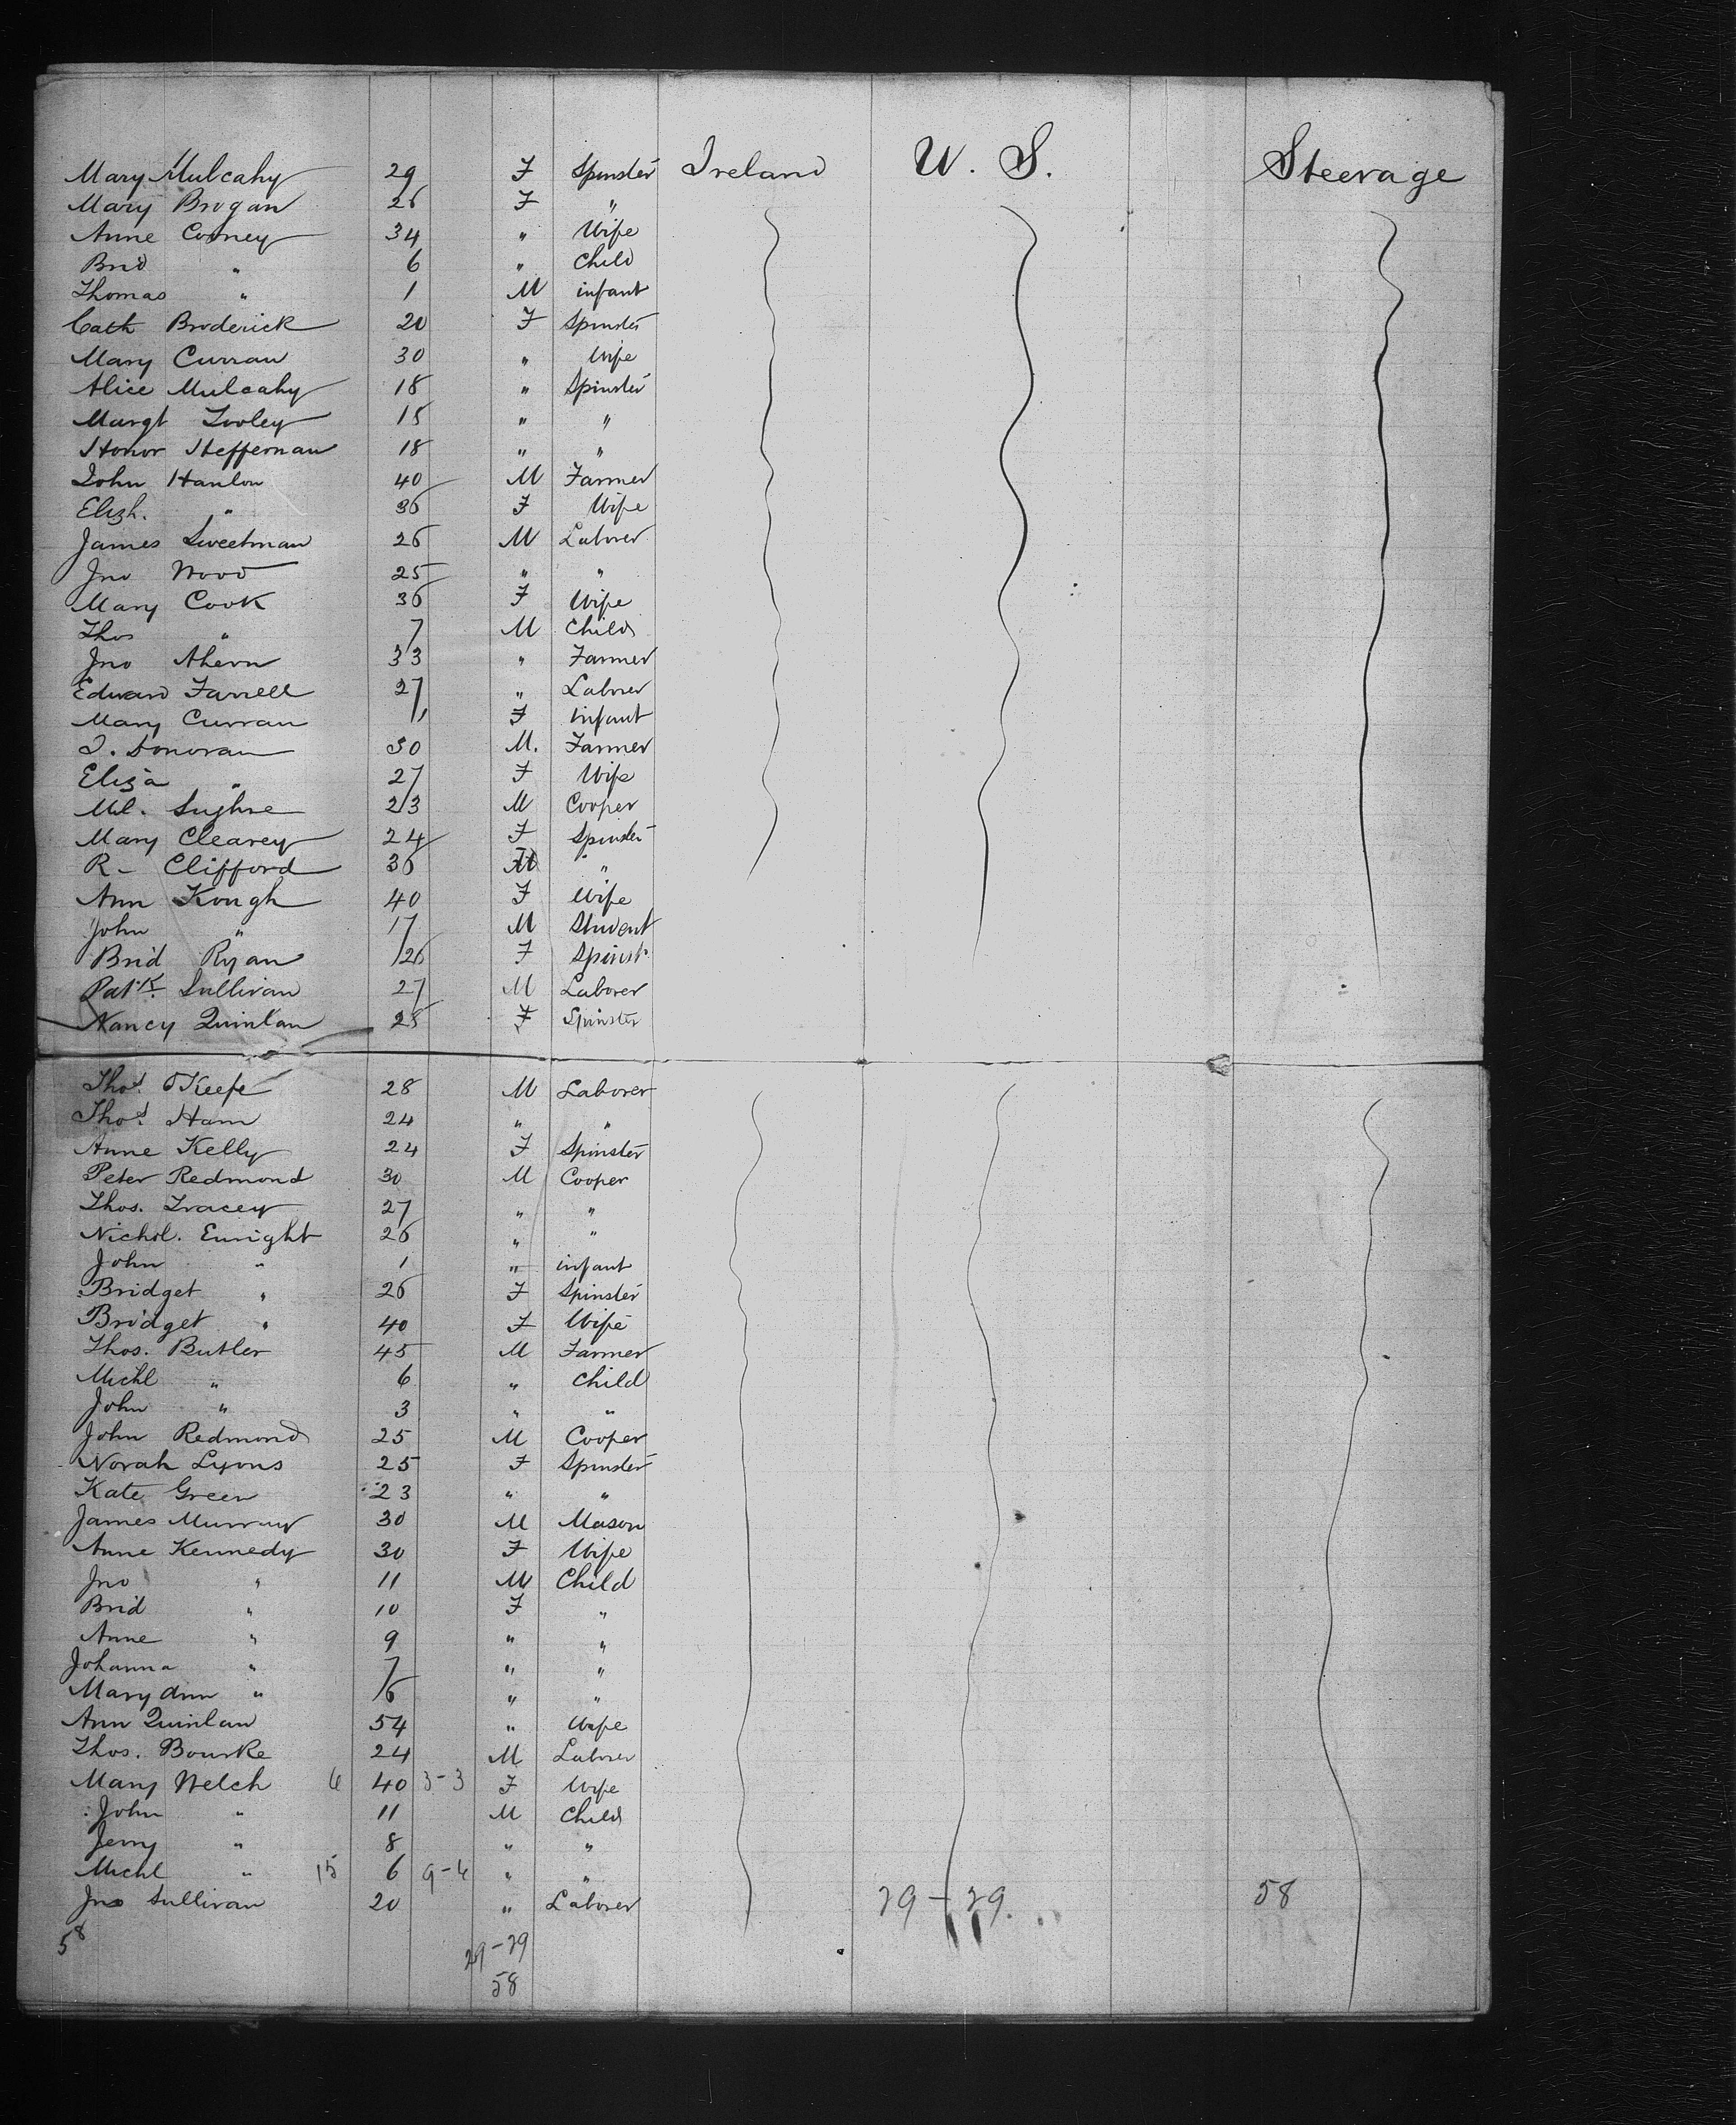 Mary Mulcahy 29 F Spinster Ireland U. S. Steerage
Mary Brogan 26 F "
Anne Cooney 34 " Wife
Brid " 6 " Child
Thomas " 1 M infant
Cath Broderick 20 F Spinster
Mary Curran 30 " Wife
Alice Mulcahy 18 " Spinster
Margt Tooley 15 " "
Honor Heffernan 18 " "
John Hanlon 40 M Farmer
Elizh. " 36 F Wife
James Sweetman 26 M Laborer
Jno Wood 25 " "
Mary Cook 36 F Wife
Thos " 7 M Child
Jno Ahern 33 " Farmer
Edward Farrell 27 " Laborer
Mary Curran 1 F infant
T. Donovan 30 M. Farmer
Eliza " 27 F Wife
Ml. Sughrue 23 M Cooper
Mary Clearey 24 F Spinster
R- Clifford 36 "
Ann Kough 40 F Wife
John " 17 M Student
Brid Ryan 26 F Spinstr
Patk. Sullivan 27 M Laborer
Nancy Quinlan 25 F Spinster
Thos. OKeefe 28 M Laborer
Thos. Ham 24 " "
Anne Kelly 24 F Spinster
Peter Redmond 30 M Cooper
Thos. Tracey 27 " "
Nichol. Enright 26 " "
John " 1 " infant
Bridget " 26 F Spinster
Bridget " 40 F Wife
Thos. Butler 45 M Farmer
Michl " 6 " Child
John " 3 " "
John Redmond 25 M Cooper
Norah Lyons 25 F Spinster
Kate Green 23 " "
James Murray 30 M Mason
Anne Kennedy 30 F Wife
Jno " 11 M Child
Brid " 10 F "
Anne " 9 " "
Johanna " 7 " "
Mary Ann " 6 " "
Ann Quinlan 54 " Wife
Thos. Bourke 24 M Laborer
Mary Welch 6 40 3-3 F Wife
John " 11 M Child
Jerry " 8 " "
Michl " 15 6 9-6 " "
Jno Sullivan 20 " Laborer 29-29. 58
58 29-29
58